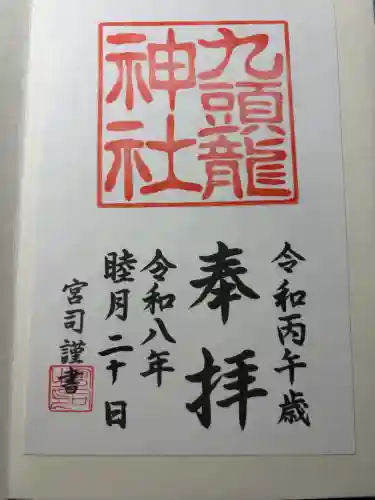 九頭龍
神社
令和丙午歳
奉拝
令和八年
睦月二十日
宮司謹書